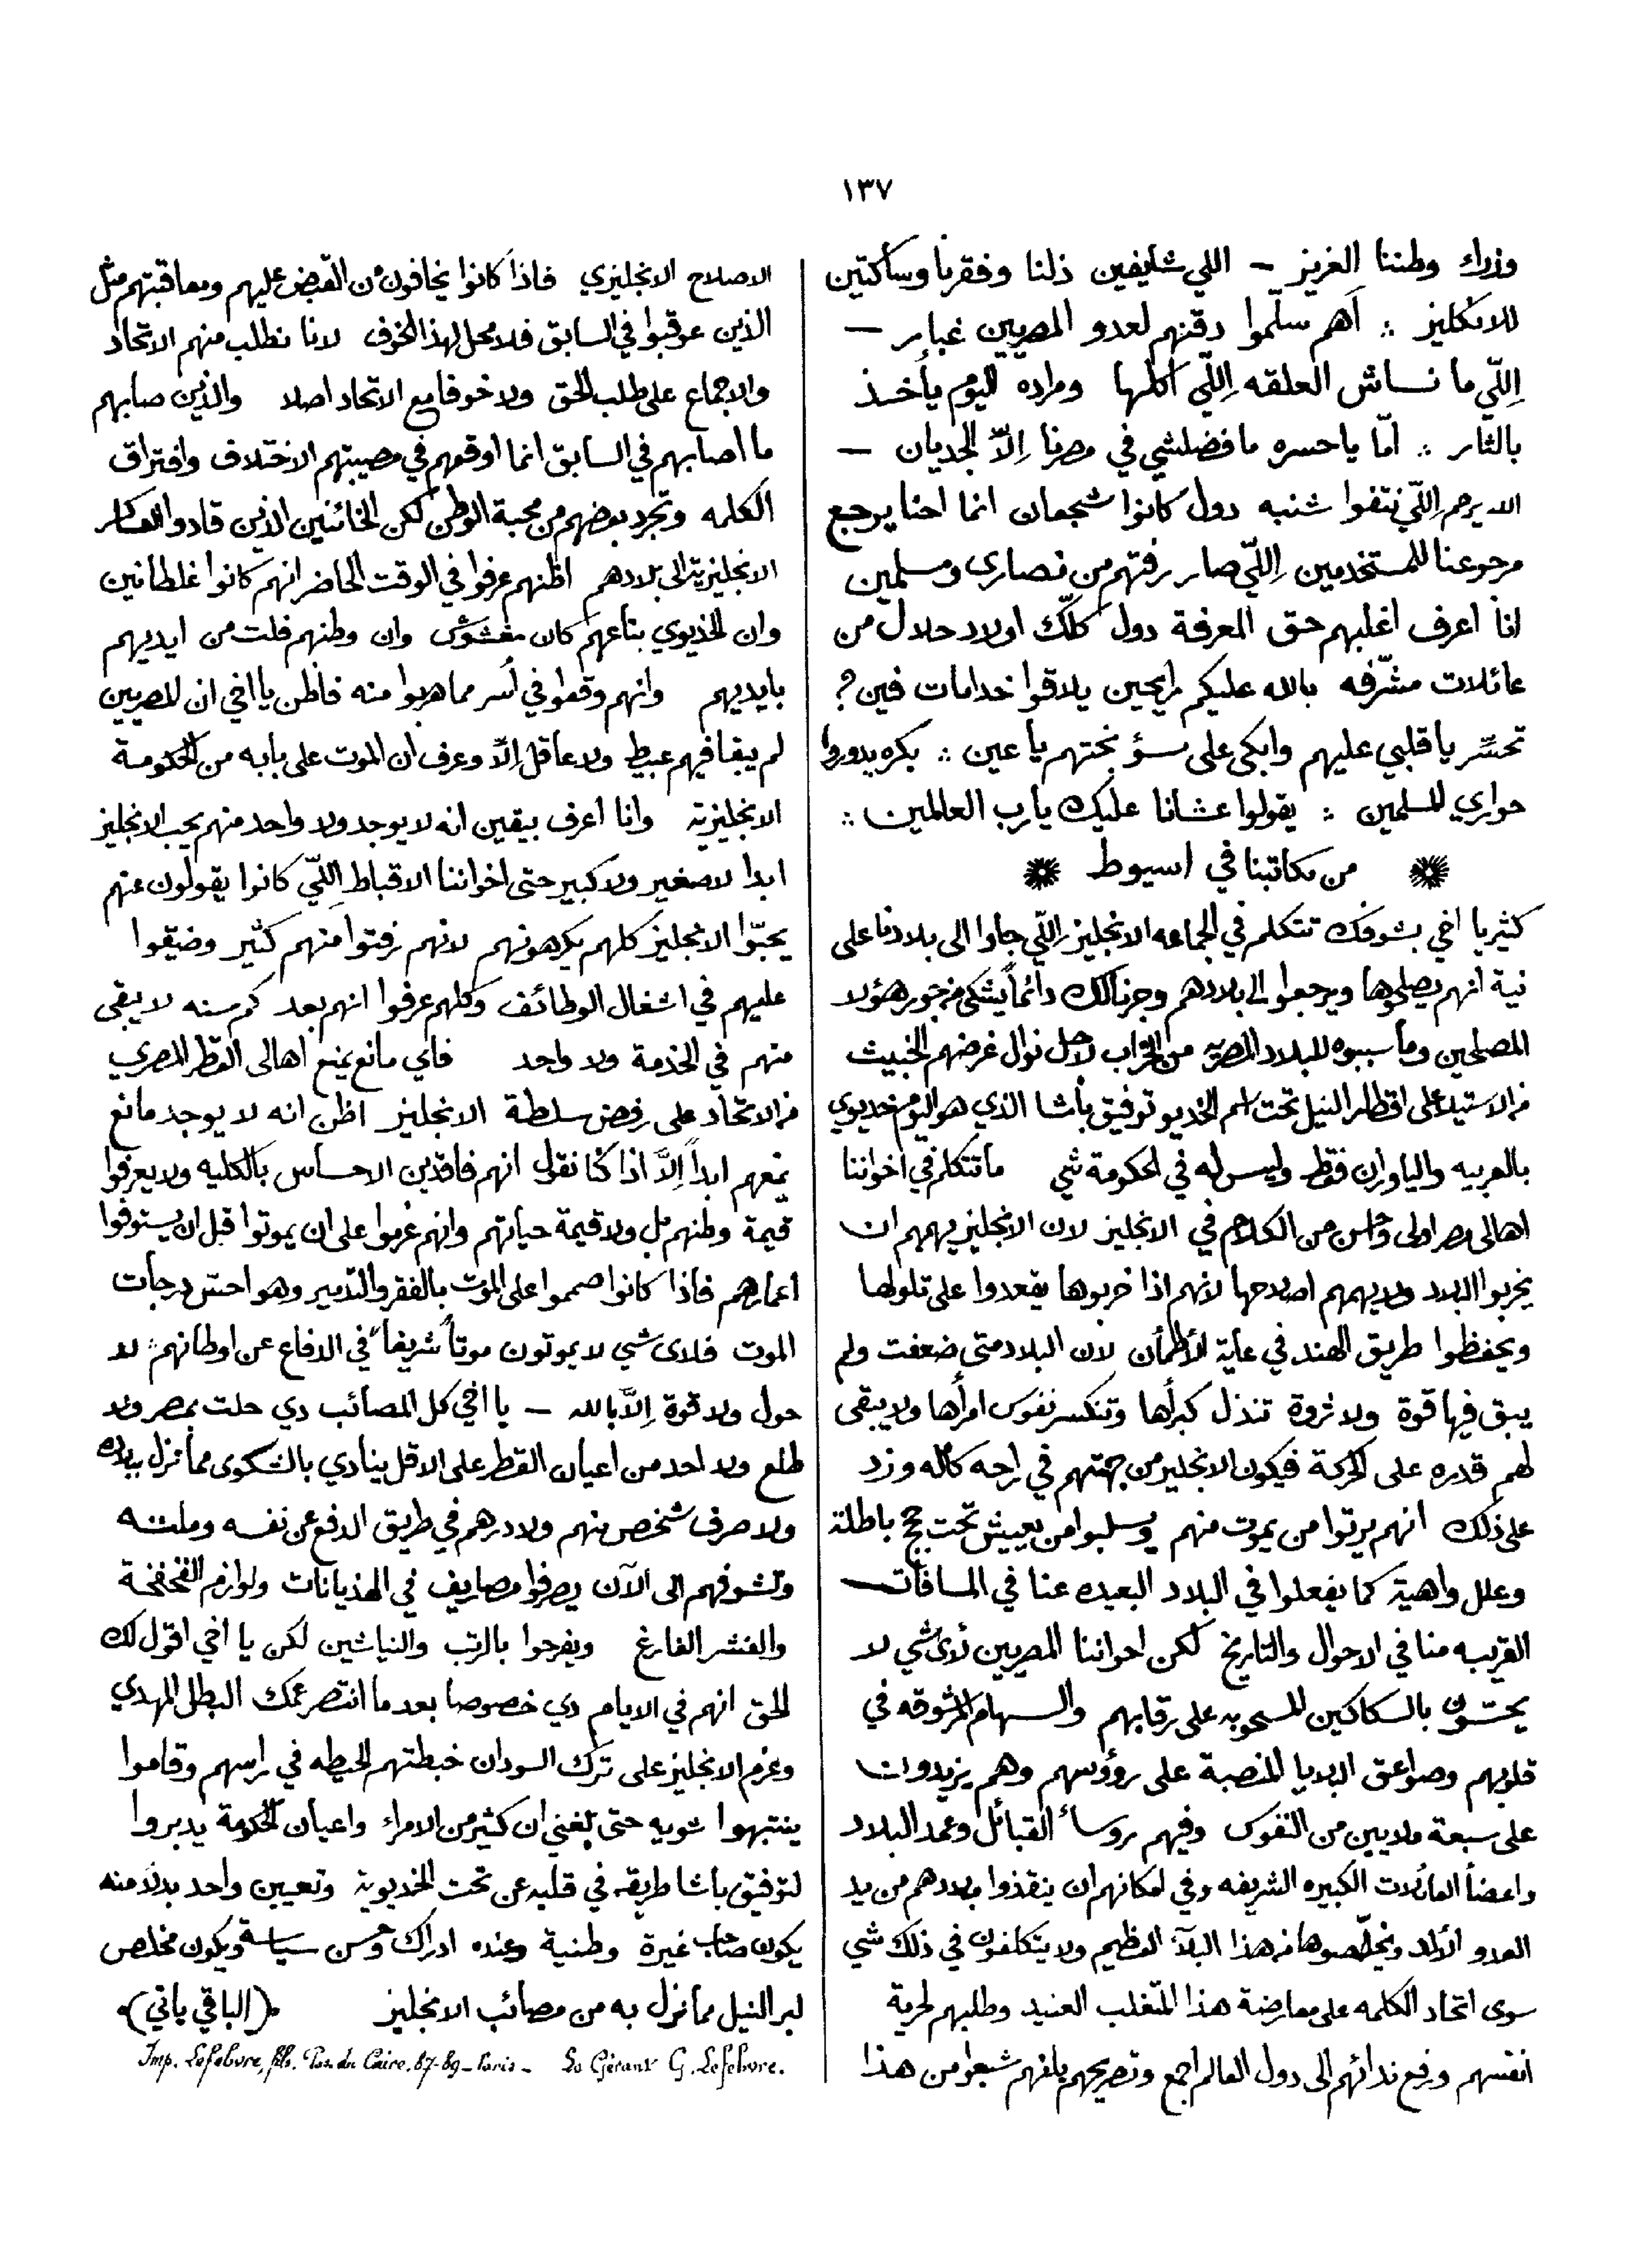 ١٣٧
وزراء وطننا العزيز – اللي شايفين ذلنا وفقرنا وساكتين
للانكليز ∴ أهم سلّموا دقنهم لعدو المصريين غباير –
اِللّي ما نساش العلقه اِللّي اكلها ومراده اليوم يأخذ
بالثار ∴ امّا ياحسره ما فضلشي في مصرنا اِلاّ الجديان –
الله يرحم اِللّي نتفوا شنبه دول كانوا شجعان انما احنا يرجع
مرجوعنا للمستخدمين اِللّي صار رفتهم من نصارى ومسلمين
انا اعرف اغلبهم حق المعرفة دول كلّك اولاد حلال من
عائلات مشرّفه بالله عليكم رايحين يلاقوا خدامات فين؟
تحسّر يا قلبي عليهم وابكى على سؤ بختهم يا عين ∴ بكره يدوروا
حواري المسلمين ∴ يقولوا عشانا عليك يارب العالمين ∴
من مكاتبنا في اسيوط
كثير يا اخي بشوفك تتكلم في الجماعه الانجليز اِللّي جاوا الى بلادنا على
نية انهم يصلحوها ويرجعوا الى بلادهم وجرنالك دائماً يشتكى من جور هؤلا
المصلحين وما سببوه للبلاد المصريه من الخراب لاجل نوال غرضهم الخبيث
من الاستيلا على اقطار النيل تحت اسم الخديو توفيق باشا الذي هو اليوم خديوي
بالعربيه والياوران فقط وليس له في الحكومة شي ما تتكلم في اخواننا
اهالى مصر اولى واحسن من الكلام في الانجليز لان الانجليز يهمهم ان
يخربوا البلاد ولا يهمهم اصلاحها لانهم اذا خربوها يقعدوا على تلولها
ويحفظوا طريق الهند في غاية الأطمأن لان البلاد متى ضعفت ولم
يبق فيها قوة ولا ثروة تنذل كبرأها وتنكسر نفوس امرأها ولا يبقى
لهم قدره على الحركة فيكون الانجليز من جهتهم في راحه كامله وزد
على ذلك انهم يرتوا من يموت منهم ويسلبوا من يعيش تحت حجج باطلة
وعلل واهية كما يفعلوا في البلاد البعيده عنا في المسافات
القريبه منا في الاحوال والتاريخ لكن اخواننا المصريين لأى شي لا
يحسّون بالسكاكين المسحوبه على رقابهم والسهام المرشوقه في
قلوبهم وصواعق البلايا المنصبة على رؤوسهم وهم يزيدوان
على سبعة ملايين من النفوس وفيهم روساء القبائل وعمد البلاد
واعضاً العائلات الكبيره الشريفه وفي امكانهم ان ينقذوا بلادهم من يد
العدو الألد ويخلّصوها من هذا البلآ العظيم ولا يتكلفون في ذلك شي
سوى اتحاد الكلمه على معارضة هذا المتغلب العنيد وطلبهم لحرية
انفسهم ورفع ندائهم الى دول العالم اجمع وتصريحهم بانهم شبعوا من هذا
الاصلاح الانجليزي فاذا كانوا يخافون من القبض عليهم ومعاقبتهم مثل
الذين عوقبوا في السابق فلا محل لهذا الخوف لانا نطلب منهم الاتحاد
والاجماع على طلب الحق ولا خوفا مع الاتحاد اصلا والذين صابهم
ما اصابهم في السابق انما اوقعهم في مصيبتهم الاختلاف وافتراق
الكلمه وتجرد بعضهم من محبة الوطن لكن الخائنين الذين قادوا العساكر
الانجليزية الى بلادهم اظنهم عرفوا في الوقت الحاضر انهم كانوا غلطانين
وان الخديوي بتاعهم كان مغشوش وان وطنهم فلت من ايديهم
بايديهم وانهم وقعوا في أسر مما هربوا منه فاظن يا اخي ان المصريين
لم يبقا فيهم عبيط ولا عاقل اِلاّ وعرف ان الموت على بابه من الحكومة
الانجليزية وانا اعرف بيقين انه لا يوجد ولا واحد منهم يحب الانجليز
ابدا لا صغير ولا كبير حتى اخواننا الاقباط اِللّي كانوا يقولون عنهم
يحبّوا الانجليز كلهم يكرهونهم لانهم رفتوا منهم كثير وضيقوا
عليهم في اشغال الوظائف وكلهم عرفوا انهم بعد كم سنه لا يبقى
منهم في الخدمة ولا واحد فاي مانع يمنع اهالى القطر المصري
من الاتحاد على رفض سلطة الانجليز اظن انه لا يوجد مانع
يمنعهم ابداً اِلاَّ اذا كنّا نقول انهم فاقدين الاحساس بالكليه ولا يعرفوا
قيمة وطنهم بل ولا قيمة حياتهم وانهم عزموا على ان يموتوا قبل ان يستوفوا
اعمارهم فاذا كانوا صمموا على الموت بالفقر والتدمير وهو احسّ درجات
الموت فلاى شي لا يموتون موتاً شريفاً في الدفاع عن اوطانهم ∴ لا
حول ولا قوة اِلاَّ بالله – يا اخي كل المصائب دي حلت بمصر ولا
طلع ولا احد من اعيان القطر على الاقل ينادي بالشكوى مما نزل ببلاده
ولا صرف شخص منهم ولا درهم في طريق الدفع عن نفسه وملته
وتشوفهم الى الآن يصرفوا مصاريف في الهذيانات ولوازم الفخفخة
والفشر الفارغ ويفرحوا بالرتب والنياشين لكن يا اخي اقول لك
الحق انهم في الايام دي خصوصا بعد ما انتصر عمك البطل المهدي
وعزم الانجليز على ترك السودان خبطتهم الحيطه في راسهم وقاموا
ينتبهوا شويه حتى بلغني ان كثير من الامراء واعيان الحكومة يدبروا
لتوفيق باشا طريقه في قلبه عن تحت الخديوية وتعيين واحد بدلاً منه
يكون صاحب غيرة وطنية وعنده ادراك وحسن سياسة ويكون مخلص
لبر النيل مما نزل به من مصائب الانجليز (الباقي ياتي)
Imp. Lefebvre, Pas. du Caire. 87-89 – Paris – Le Gérant G. Lefebvre.